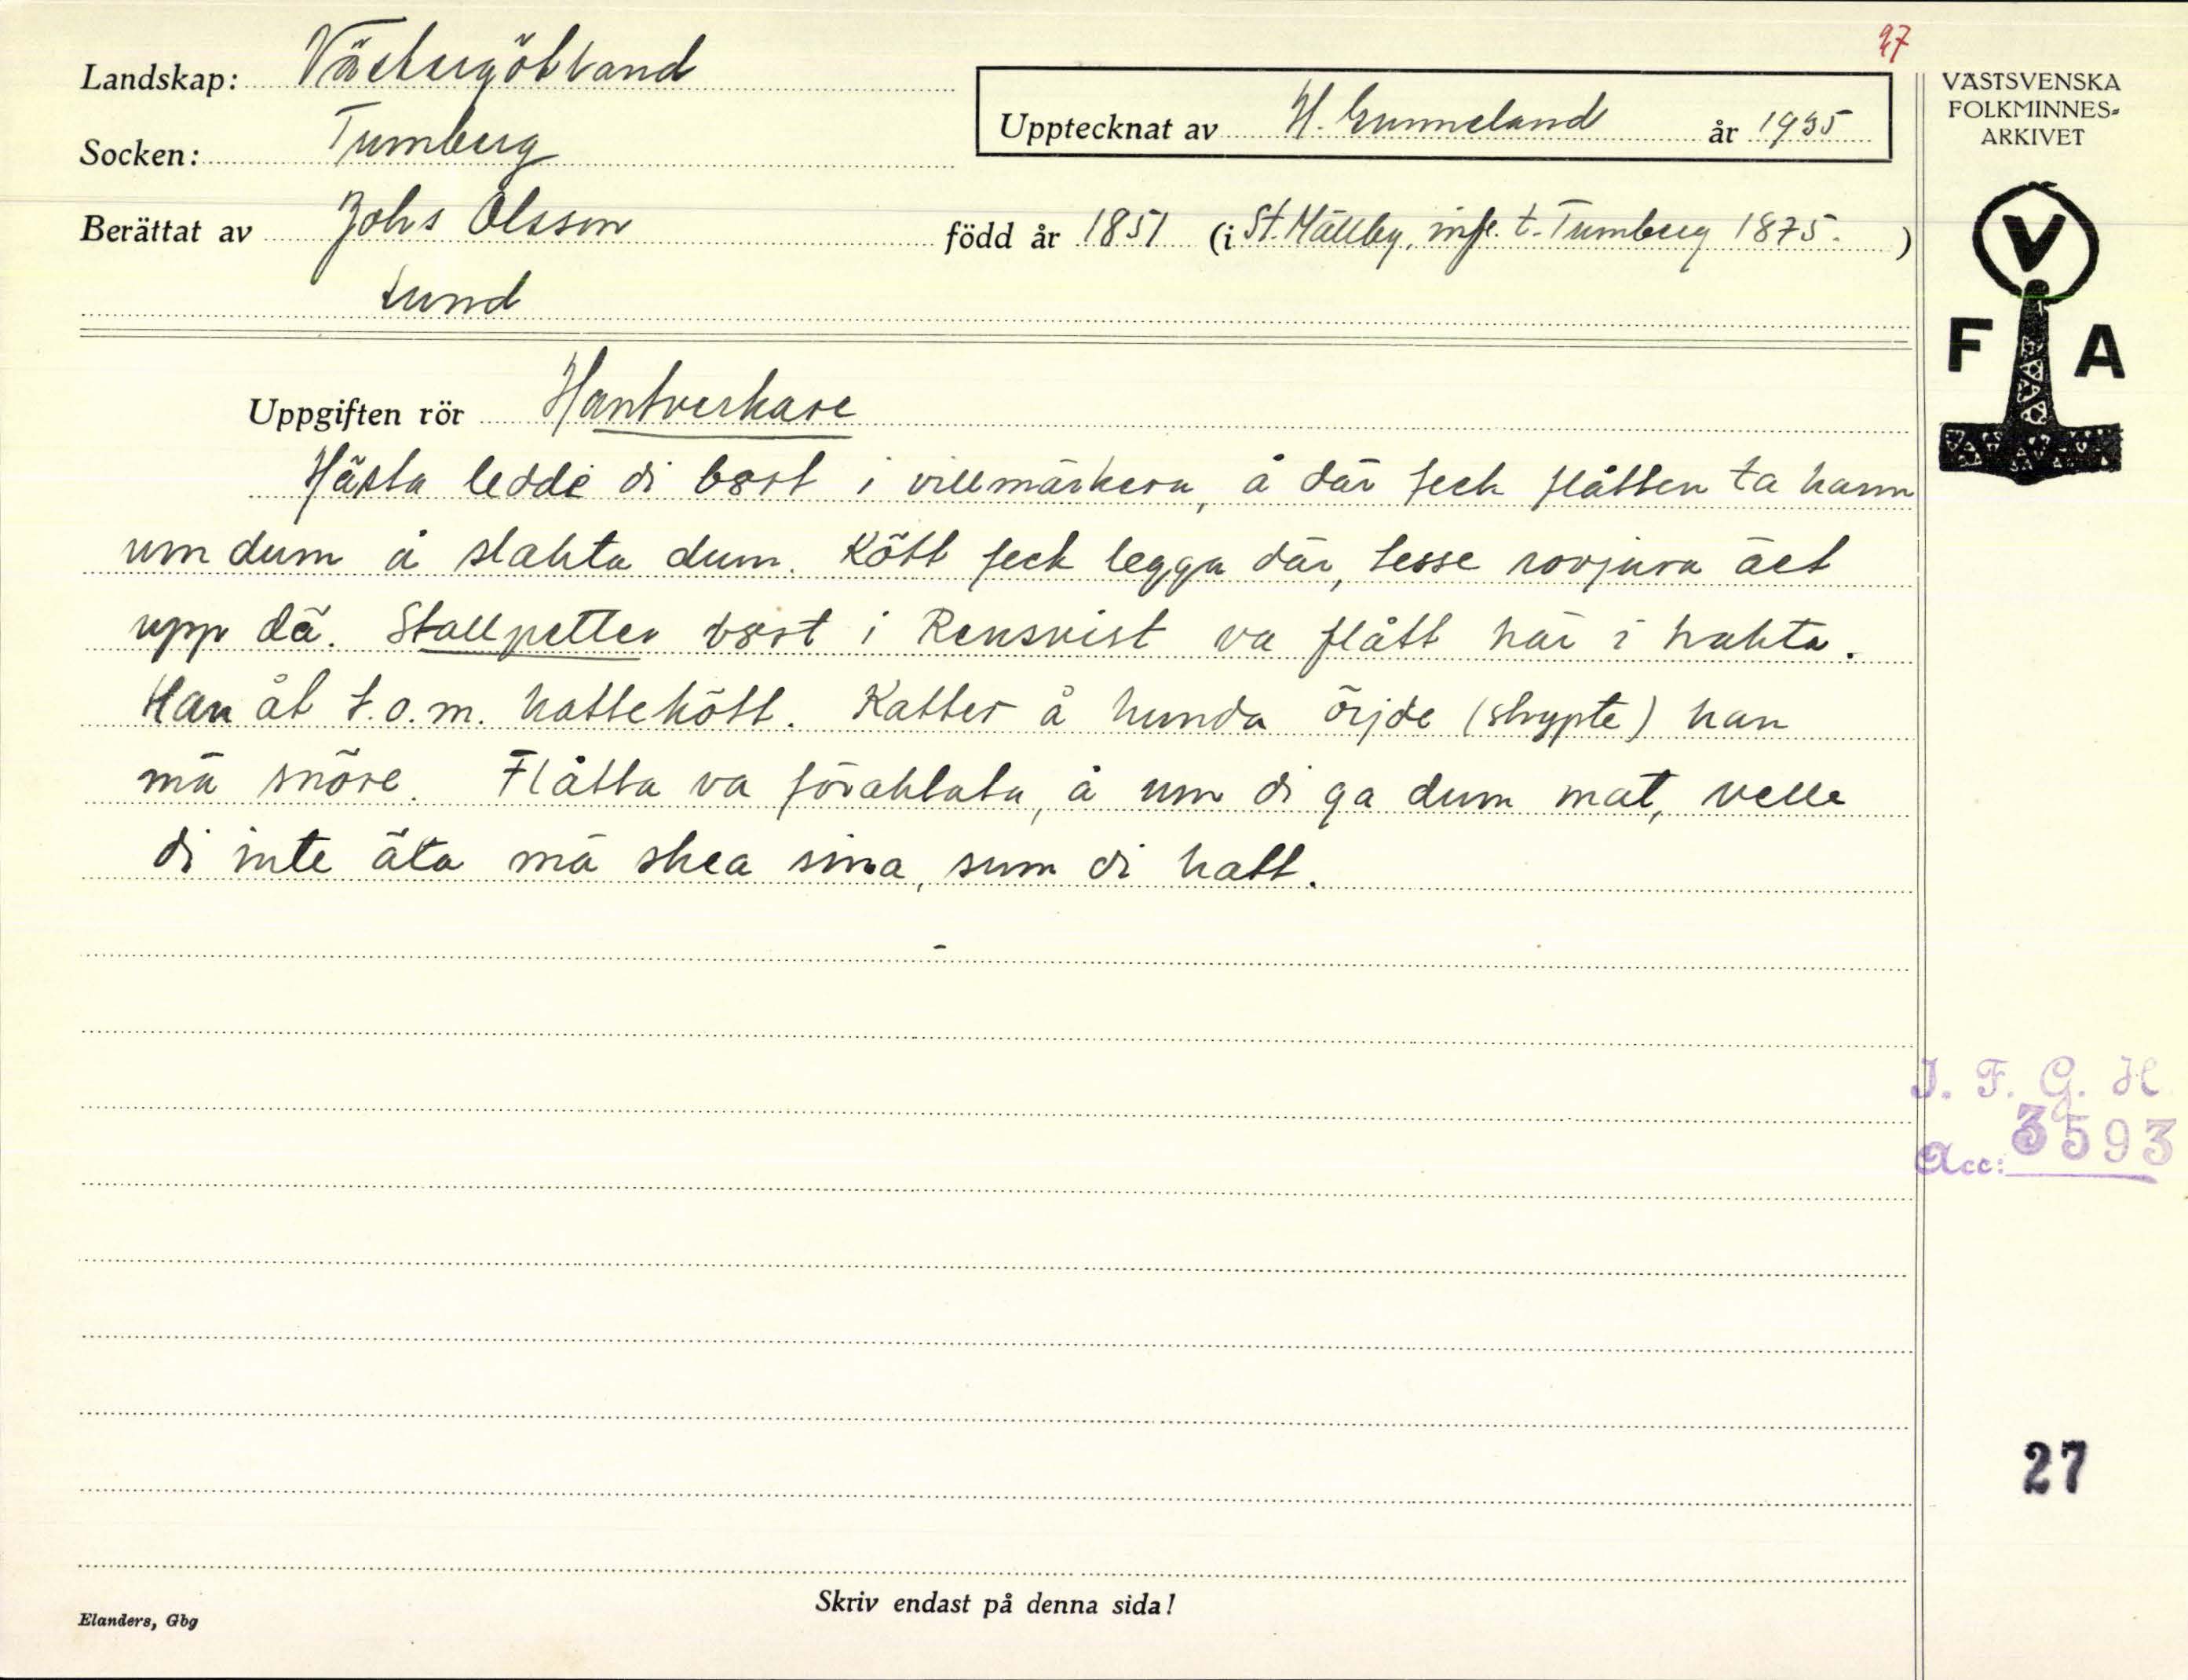 27
Landskap: Västergötland
Socken: Tumberg
Upptecknat av H. Gunneland år 1935
Berättat av Johs Olsson född år 1851 (i St. Mällby, infl. t. Tumberg 1875.)
Lund
VÄSTSVENSKA
FOLKMINNES-
ARKIVET
V
F A
Uppgiften rör Hantverkare
Hästa ledde di bort i villmarkera, å där feck flåtten ta hann
um dum å slakta dum. Kött feck legga där, tesse rovjura äet
upp dä. Stallpetter bort i Rensvist va flått här i trakta.
Han åt t.o.m. kattekött. Katter å hunda örjde (strypte) han
mä snöre. Flåtta va föraktata, å um di ga dum mat, velle
di inte äta mä skea sina, sum di hatt.
J. F. G. H
Acc: 3593
27
Skriv endast på denna sida!
Elanders, Gbg